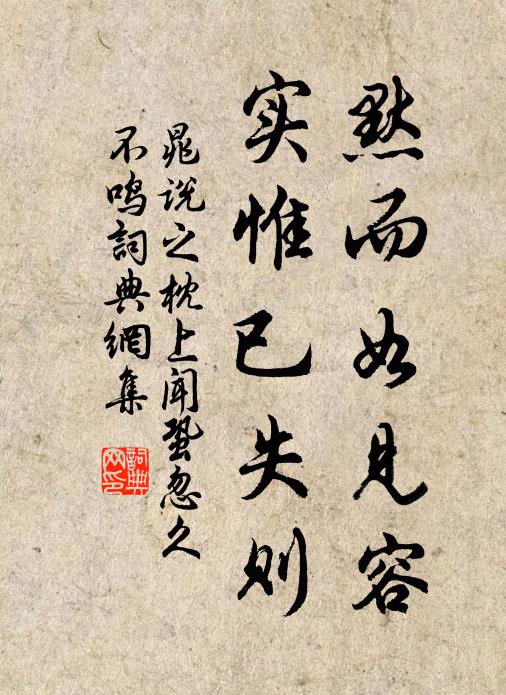 默而如見容
实惟已失则
晁说之枕上闻蛩忽久
不鸣詞典網集
詞典
网印